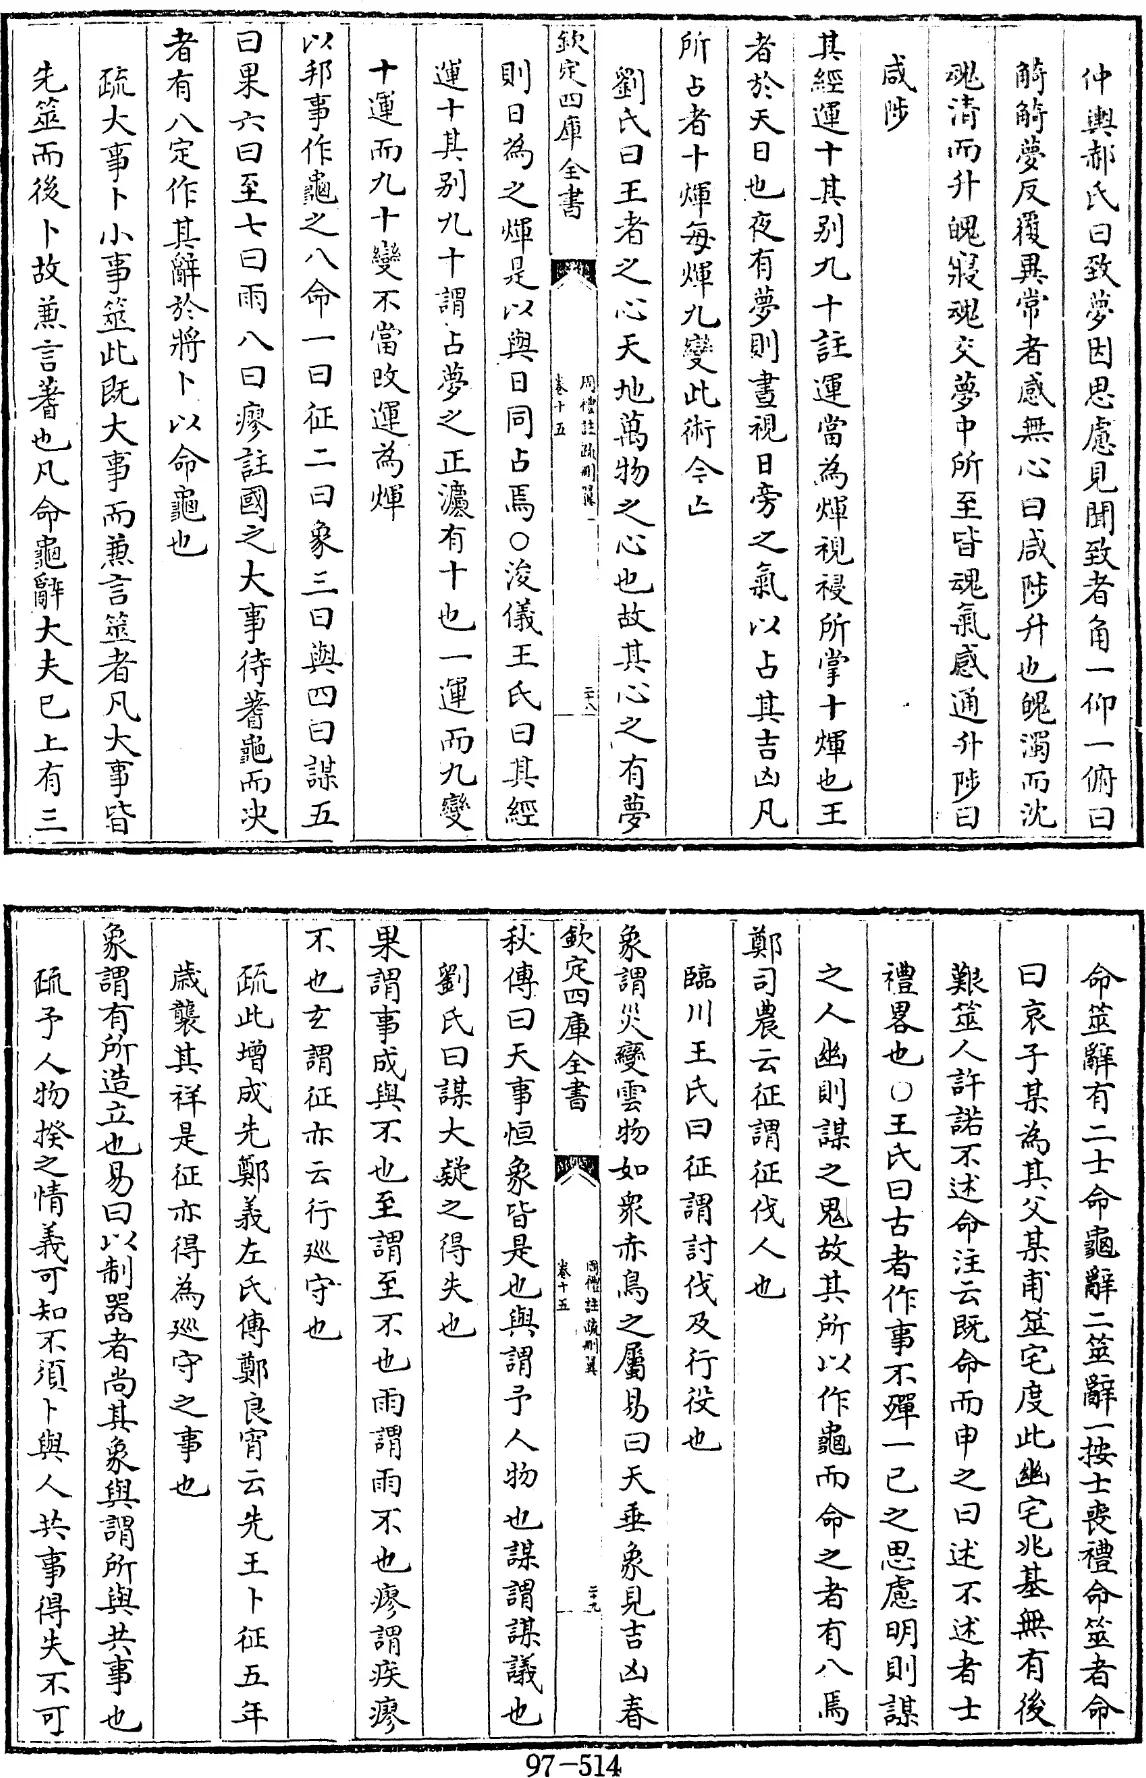 仲輿郝氏曰致夢因思慮見聞致者角一仰一俯曰
觭觭夢反覆異常者感無心曰咸陟升也魄濁而沈
魂清而升魄寢魂交夢中所至皆魂氣感通升陟曰
咸陟
其經運十其别九十註運當為煇視祲所掌十煇也王
者於天日也夜有夢則晝視日旁之氣以占其吉凶凡
所占者十煇每煇九變此術今亡
劉氏曰王者之心天地萬物之心也故其心之有夢
欽定四庫全書
周禮註疏刪翼
卷十五
二十八
則日為之煇是以與日同占焉○浚儀王氏曰其經
運十其别九十謂占夢之正灋有十也一運而九變
十運而九十變不當改運為煇
以邦事作龜之八命一曰征二曰象三曰與四曰謀五
曰果六曰至七曰雨八曰瘳註國之大事待蓍龜而决
者有八定作其辭於將卜以命龜也
疏大事卜小事筮此既大事而兼言筮者凡大事皆
先筮而後卜故兼言蓍也凡命龜辭大夫已上有三
命筮辭有二士命龜辭二筮辭一按士喪禮命筮者命
曰哀子某為其父某甫筮宅度此幽宅兆基無有後
艱筮人許諾不述命注云既命而申之曰述不述者士
禮畧也○王氏曰古者作事不殫一已之思慮明則謀
之人幽則謀之鬼故其所以作龜而命之者有八焉
鄭司農云征謂征伐人也
臨川王氏曰征謂討伐及行役也
象謂災變雲物如衆赤鳥之屬易曰天垂象見吉凶春
欽定四庫全書
周禮註疏刪翼
卷十五
二十九
秋傳曰天事恒象皆是也與謂予人物也謀謂謀議也
劉氏曰謀大疑之得失也
果謂事成與不也至謂至不也雨謂雨不也瘳謂疾瘳
不也玄謂征亦云行廵守也
疏此增成先鄭義左氏傳鄭良宵云先王卜征五年
歳襲其祥是征亦得為廵守之事也
象謂有所造立也易曰以制器者尚其象與謂所與共事也
疏予人物揆之情義可知不須卜與人共事得失不可
97-514